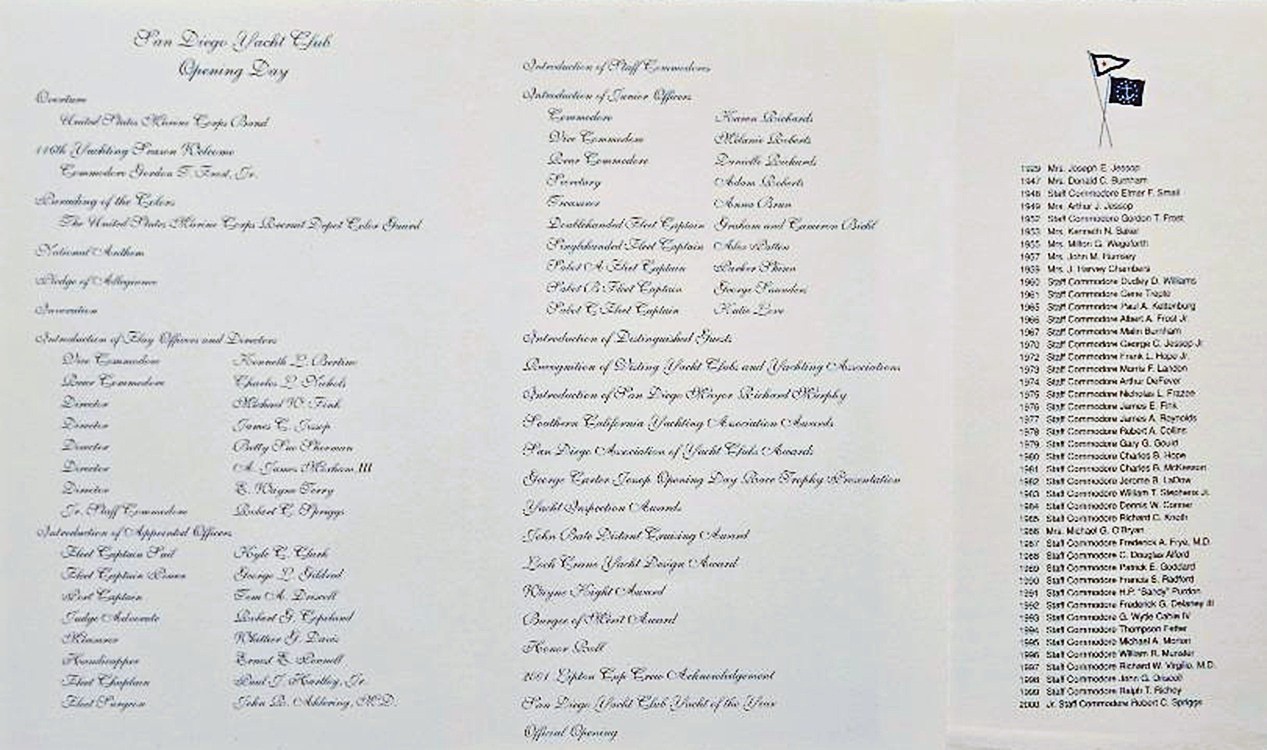 San Diego Yacht Club
Opening Day
Overture
United States Marine Corps Band
116th Yachting Season Welcome
Commodore Gordon T. Frost, Jr.
Parading of the Colors
The United States Marine Corps Recruit Depot Color Guard
National Anthem
Pledge of Allegiance
Invocation
Introduction of Flag Officers and Directors
Vice Commodore Kenneth L. Bertino
Rear Commodore Charles L. Nichols
Director Michael W. Fink
Director James C. Jessop
Director Betty Sue Sherman
Director A. James III
Director E. Wayne Terry
Jr. Staff Commodore Robert C. Spriggs
Introduction of Appointed Officers
Fleet Captain Sail Kyle C. Clark
Fleet Captain Power George L. Gildred
Port Captain Tom A. Driscoll
Judge Advocate Robert G. Copeland
Measurer G. Davis
Handicapper Ernest E. Pennell
Fleet Chaplain Paul J. Hartley, Jr.
Fleet Surgeon John R. M.D.
Introduction of Staff Commodores
Introduction of Junior Officers
Commodore Karen Richards
Vice Commodore Melanie Roberts
Rear Commodore Danielle Richards
Secretary Adam Roberts
Treasurer Anna Brun
Doublehanded Fleet Captain Graham and Cameron Biehl
Singlehanded Fleet Captain
Sabot A Fleet Captain Parker Shinn
Sabot B Fleet Captain George Saunders
Sabot C Fleet Captain Katie Love
Introduction of Distinguished Guests
Recognition of Visting Yacht Clubs and Yachting Associations
Introduction of San Diego Mayor Richard Murphy
Southern California Yachting Association Awards
San Diego Association of Yacht Clubs Awards
George Carter Jessop Opening Day Race Trophy Presentation
Yacht Inspection Awards
John Bate Distant Cruising Award
Loch Crane Yacht Design Award
Wayne Hight Award
Burgee of Merit Award
Honor Roll
2001 Lipton Cup Crew Acknowledgement
San Diego Yacht Club Yacht of the Year
Official Opening
1929 Mrs. Joseph E. Jessop
1947 Mrs. Donald C. Burnham
1948 Staff Commodore Elmer F. Small
1949 Mrs. Arthur J. Jessop
1952 Staff Commodore Gordon T. Frost
1953 Mrs. Kenneth N. Baker
1955 Mrs. Milton G. Wegeforth
1957 Mrs. John M. Rumsey
1959 Mrs. J. Harvey Chambers
1960 Staff Commodore Dudley D. Williams
1961 Staff Commodore Gene Trepte
1965 Staff Commodore Paul A. Kettenburg
1966 Staff Commodore Albert A. Frost Jr.
1967 Staff Commodore Malin Burnham
1970 Staff Commodore George C. Jessop Jr.
1972 Staff Commodore Frank L. Hope Jr.
1973 Staff Commodore Morris F. Landon
1974 Staff Commodore Arthur DeFever
1975 Staff Commodore Nicholas L. Frazee
1976 Staff Commodore James E. Fink
1977 Staff Commodore James A. Reynolds
1978 Staff Commodore Robert A. Collins
1979 Staff Commodore Gary G. Gould
1980 Staff Commodore Charles B. Hope
1981 Staff Commodore Charles R. McKesson
1982 Staff Commodore Jerome B. LaDow
1983 Staff Commodore William T. Stephens Jr.
1984 Staff Commodore Dennis W. Conner
1985 Staff Commodore Richard C. Knoth
1986 Mrs. Michael G. O'Bryan
1987 Staff Commodore Frederick A. Frye, M.D.
1988 Staff Commodore C. Douglas Alford
1989 Staff Commodore Patrick E. Goddard
1990 Staff Commodore Francis S. Radford
1991 Staff Commodore H.P. "Sandy" Purdon
1992 Staff Commodore Frederick G. Delaney III
1993 Staff Commodore G. Wytie Cable IV
1994 Staff Commodore Thompson Fetter
1995 Staff Commodore Michael A. Morton
1996 Staff Commodore William R. Munster
1997 Staff Commodore Richard W. Virgilio, M.D.
1998 Staff Commodore John G. Driscoll
1999 Staff Commodore Ralph T. Richey
2000 Jr. Staff Commodore Robert C. Spriggs